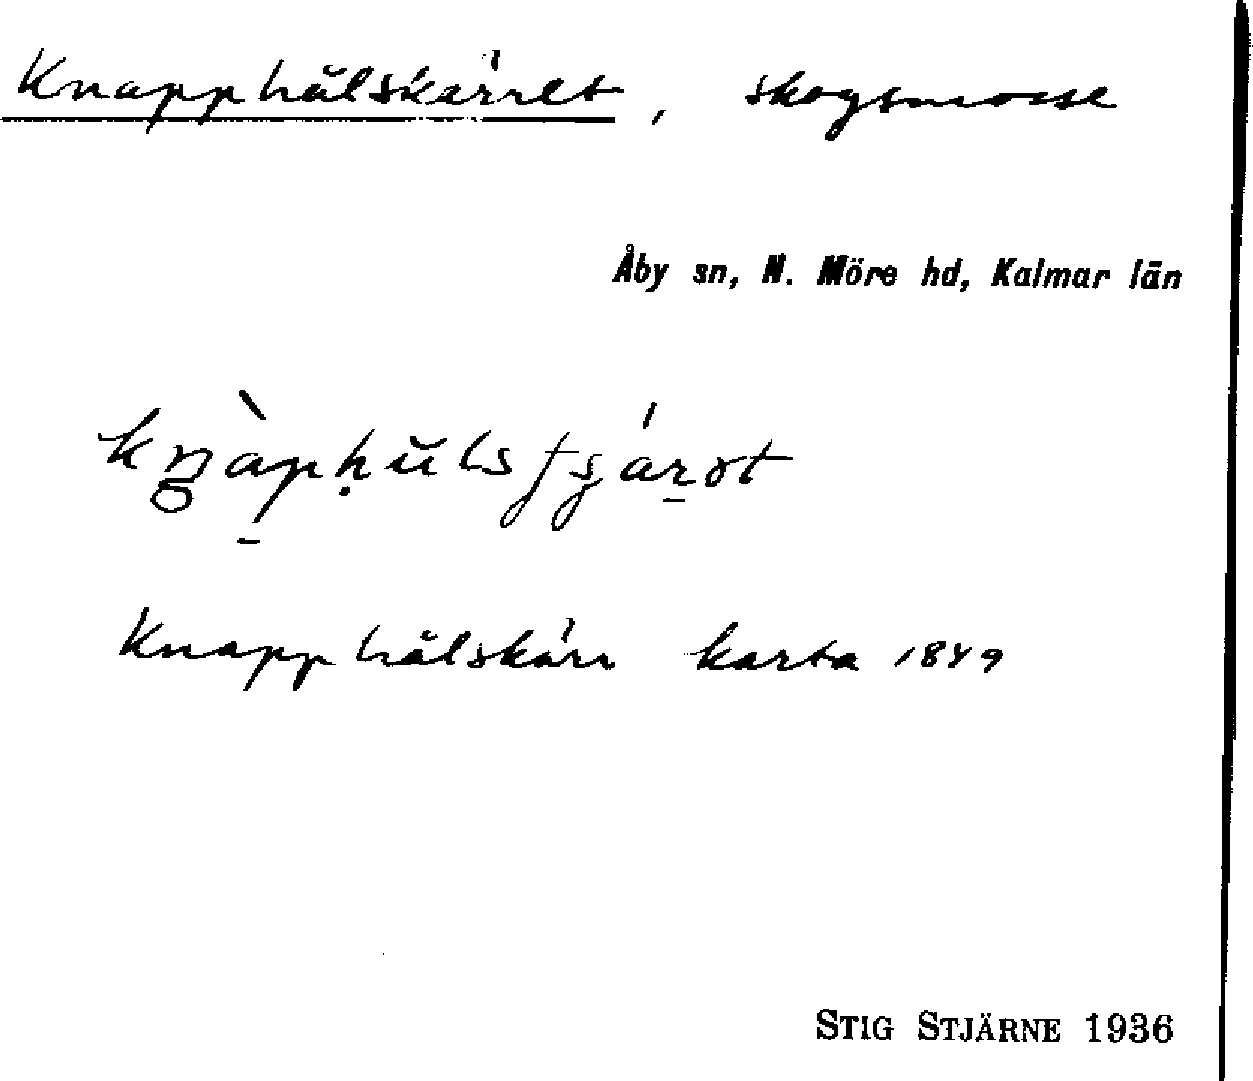 Knapphålskärret, skogsmosse
Åby sn, N. Möre hd, Kalmar län
Knapphålskärr karta 1849
STIG STJÄRNE 1936